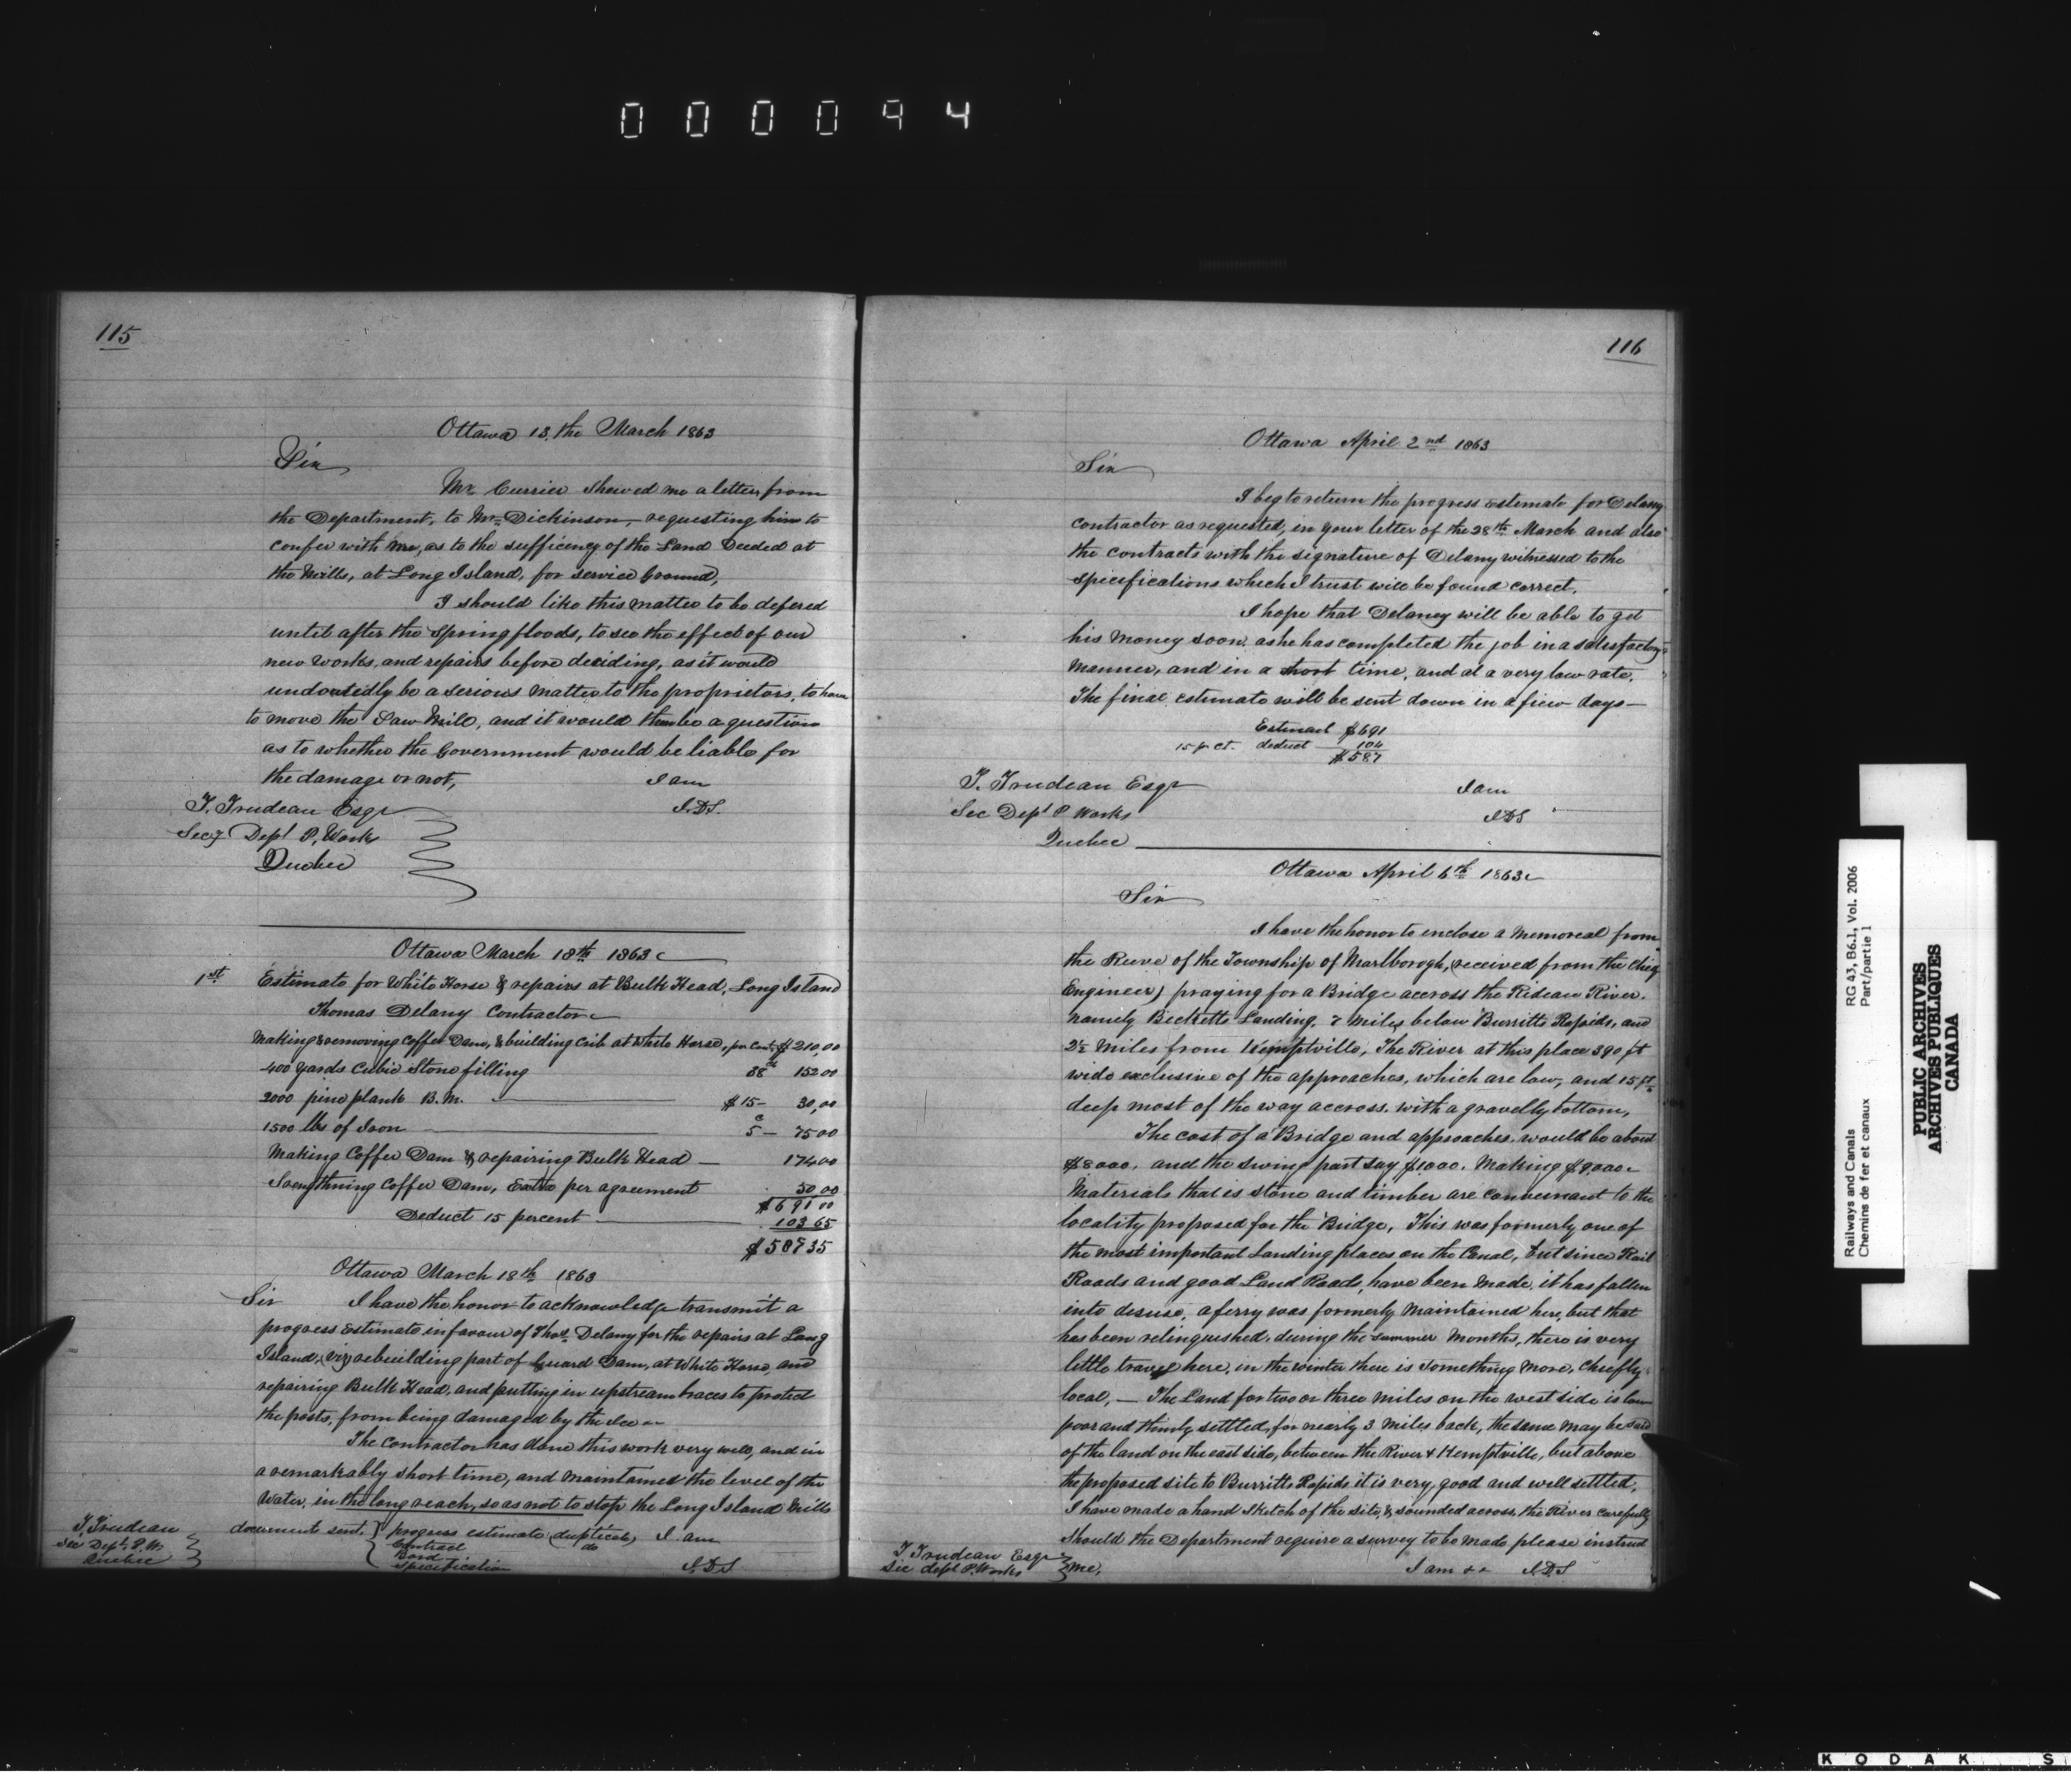 000094
115
Ottawa 13.the March 1863
Sir
Mr Currier Shewed me a letter from
the Department, to Mr Dickinson, requesting him to
confer with me, as to the sufficency of the Land Deeded at
the Mills, at Long Island, for service Ground,
I should like this matter to be defered
until after the Spring floods, to see the effect of our
new works, and repairs before deciding, as it would
undoutedly be a serious matter to the proprietors, to have
to move the Saw Mill, and it would then be a question
as to whether the Government would be liable for
the damage or not,
I am
J.D.S.
T. Trudeau Esqr
Secy Dept P. Work
Quebec
Ottawa March 18th 1863
1st Estimate for White Horse & repairs at Bulk Head, Long Island
Thomas Delany Contractor
Making & removing Coffer Dam, & building Crib at White Horse, per Cont. $ 210,00
400 yards Cubic Stone filling 38 cts 152 00
2000 pine plank B.M. $15 — 30,00
1500 lbs of Iron 5c — 75 00
Making Coffer Dam & repairing Bulk Head — 174 00
Strengthning Coffer Dam, Extra per agreement 50 00
$ 691 00
Deduct 15 percent 103 65
$ 587 35
Ottawa March 18th 1863
Sir I have the honor to acknowledge transmit a
progress Estimate in favour of Thos. Delany for the repairs at Long
Island, (viz) rebuilding part of Guard Dam, at White Horse, and
repairing Bulk Head, and putting in upstream braces to protect
the posts, from being damaged by the Ice
The Contractor has done this work very well, and in
a remarkably short time, and maintained the level of the
Water, in the long reach, so as not to stop the Long Island Mills
T. Trudeau
Sec Dept. P.W.
Quebec
document sent. progress estimate (duplicate) I am
Contract do
Bond
Specification
J.D.S
116
Ottawa April 2nd 1863
Sir
I beg to return the progress estimate for Delany
Contractor as requested, in your letter of the 28th March and also
the contracts with the signature of Delany witnessed to the
Specifications which I trust will be found correct.
I hope that Delaney will be able to get
his money soon. as he has completed the job in a satisfactory
manner, and in a short time, and at a very low rate.
The final estimate will be sent down in a few days —
Estimate $691
15 pr ct. deduct — 104
$587
T. Trudeau Esqr
Sec Dept P Works
Quebec
I am
J.D.S
Ottawa April 6th 1863
Sir
I have the honor to enclose a Memoreal from
the Reeve of the Township of Marlborogh, (received from the Chief
Engineer) praying for a Bridge accross the Rideau River.
namely Becketts Landing, 7 miles below Burritts Rapids, and
2½ miles from Kemptville, The River at this place 390 ft
wide exclusive of the approaches, which are low, and 15 ft.
deep most of the way accross. with a gravelly bottom,
The cost of a Bridge and approaches. would be about
$8000. and the swing part say $1000. Making $9,000
Materials that is stone and timber are convenant to the
locality proposed for the Bridge, This was formerly one of
the most important Landing places on the Canal, but since Rail
Roads and good Land Roads, have been made, it has fallen
into desuse, a ferry was formerly Maintained here, but that
has been relinquished. during the summer months, there is very
little travel here, in the winter there is something more, Chiefly
local, — The Land for two or three miles on the west side is low
poor and thinly settled, for nearly 3 miles back, the same may be said
of the land on the east side, between the River & Kemptville, but above
the proposed site to Burritts Rapids it is very good and well settled,
I have made a hand Sketch of the site, & sounded across the River carefully
Should the Department require a survey to be made please instruct
me,
T Trudeau Esqr
Sec dept P. Works
I am &c J.D.S
Railways and Canals
Chemins de fer et canaux
RG 43, B6.1, Vol. 2006
Part/partie 1
PUBLIC ARCHIVES
ARCHIVES PUBLIQUES
CANADA
KODAK S